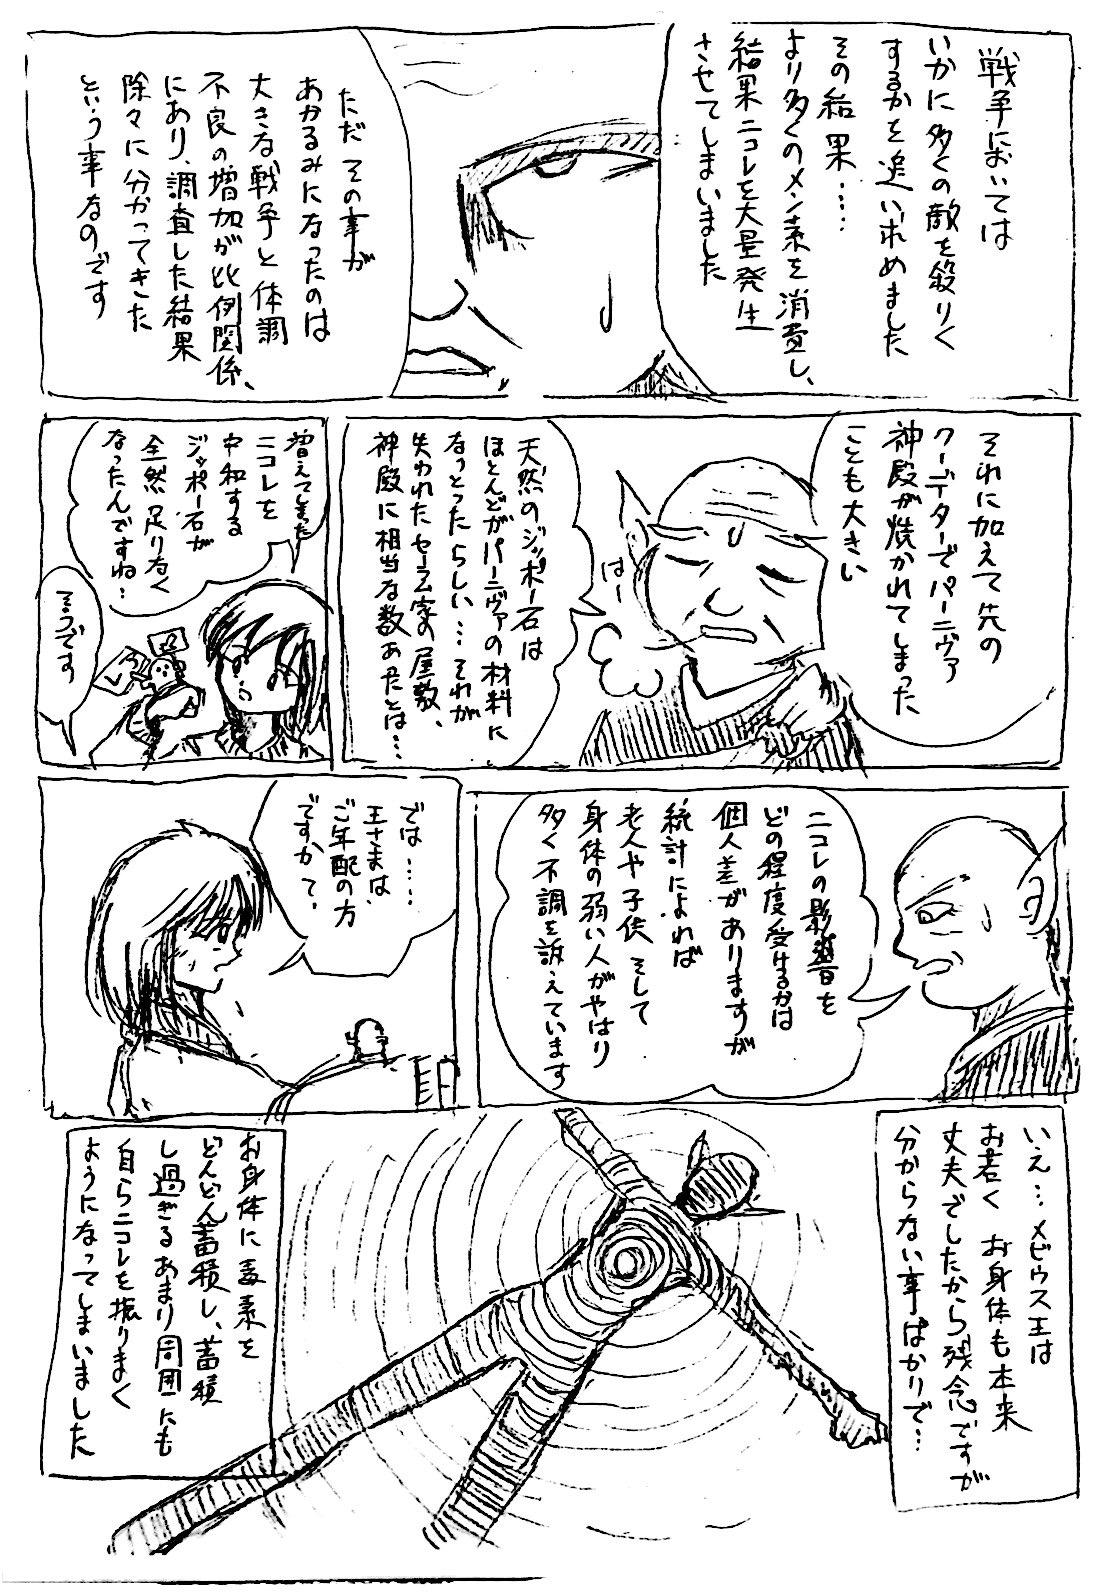 戦争においては
いかに多くの敵を殺りく
するかを追いれめました
その結果‥‥
より多くのメンソを消費し、
結果ニコレを大量発生
させてしまいました
ただその事が
あかるみになったのは
大きな戦争と体調
不良の増加が比例関係、
にあり、調査した結果
除々に分かってきた
という事なのです
それに加えて先の
クーデターでパーニヴァ
神殿が焼かれてしまった
ことも大きい
はー
天然のジッポー石は
ほとんどがパーニヴァの材料に
なっとったらしい…それが
失われたセーラム家の屋敷、
神殿に相当な数あったとは…
増えてしまった
ニコレを
中和する
ジッポー石が
全然足りなく
なったんですね…
そうです
ニコレの影響を
どの程度受けるかは
個人差がありますが
統計によれば
老人や子供 そして
身体の弱い人がやはり
多く不調を訴えています
では‥‥
王さまは、
ご年配の方
ですかて、
いえ…メビウス王は
お若く お身体も本来
丈夫でしたから残念ですが
分からない事ばかりで…
お身体に毒素を
どんどん蓄積し、蓄積
し過ぎるあまり周囲にも
自らニコレを振りまく
ようになってしまいました